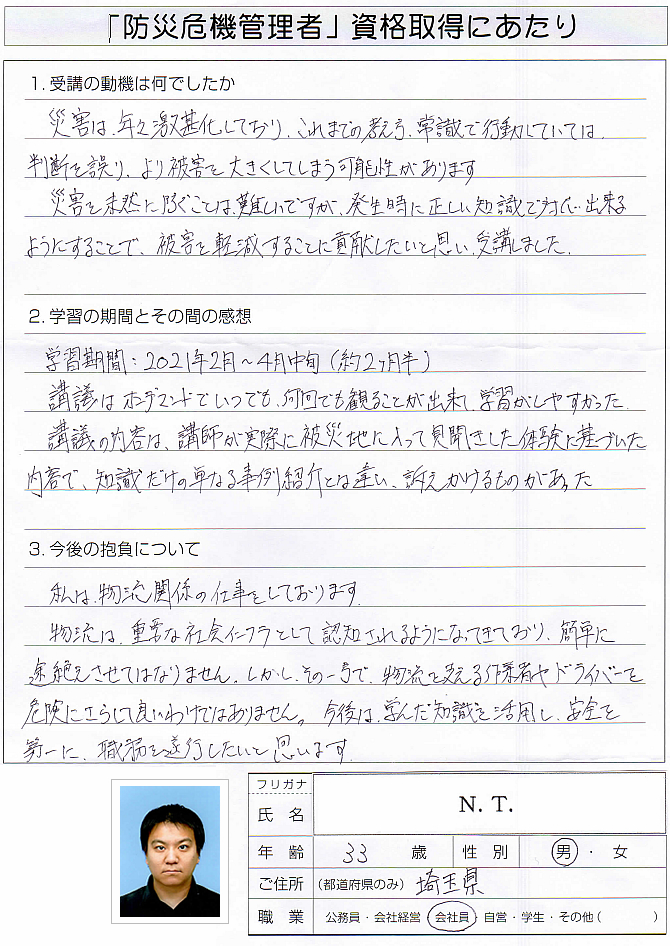 「防災危機管理者」資格取得にあたり
1. 受講の動機は何でしたか
災害は、年々激甚化しており、これまでの考え方、常識で行動していては、
判断を誤り、より被害を大きくしてしまう可能性があります
災害を未然に防ぐことは、難しいですが、発生時に正しい知識で対応出来る
ようにすることで、被害を軽減することに貢献したいと思い、受講しました。
2. 学習の期間とその間の感想
学習期間：2021年2月～4月中旬（約2ヶ月半）
講議はオンデマンドでいつでも、何回でも観ることが出来て、学習がしやすかった。
講議の内容は、講師が実際に被災地に入って見聞きした体験に基づいた
内容で、知識だけの単なる事例紹介とは違い、訴えかけるものがあった
3. 今後の抱負について
私は、物流関係の仕事をしております。
物流は、重要な社会インフラとして認知されるようになってきており、簡単に
途絶えさせてはなりません。しかし、その一方で、物流を支える作業者やドライバーを
危険にさらして良いわけではありません。今後は、学んだ知識を活用し、安全を
第一に、職務を遂行したいと思います。
フリガナ
氏 名 N. T.
年 齢 33 歳 性 別 男 ・ 女
ご住所 (都道府県のみ) 埼玉県
職 業 公務員・会社経営・会社員・自営・学生・その他( )